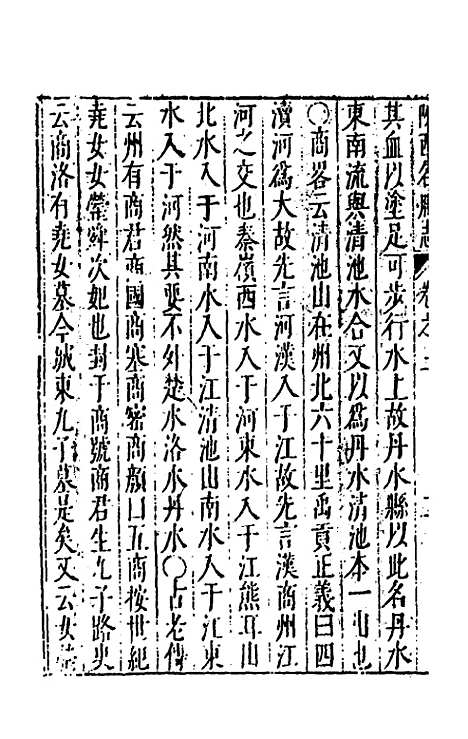 陜西名勝志 卷之二 二
其血以塗足可步行水上故丹水縣以此名丹水
東南流與清池水合又以爲丹水清池本一山也
〇商畧云清池山在州北六十里禹貢正義曰四
瀆河爲大故先言河漢入于江故先言漢商州江
河之交也秦嶺西水入于河東水入于江熊耳山
北水入于河南水入于江清池山南水入于江東
水入于河然其要不外楚水洛水丹水〇古老傳
云州有商君商國商塞商密商顏曰五商按世紀
堯女女罃舜次妃也封于商號商君生九子路史
云商洛有堯女墓今城東九子墓是矣又云女罃